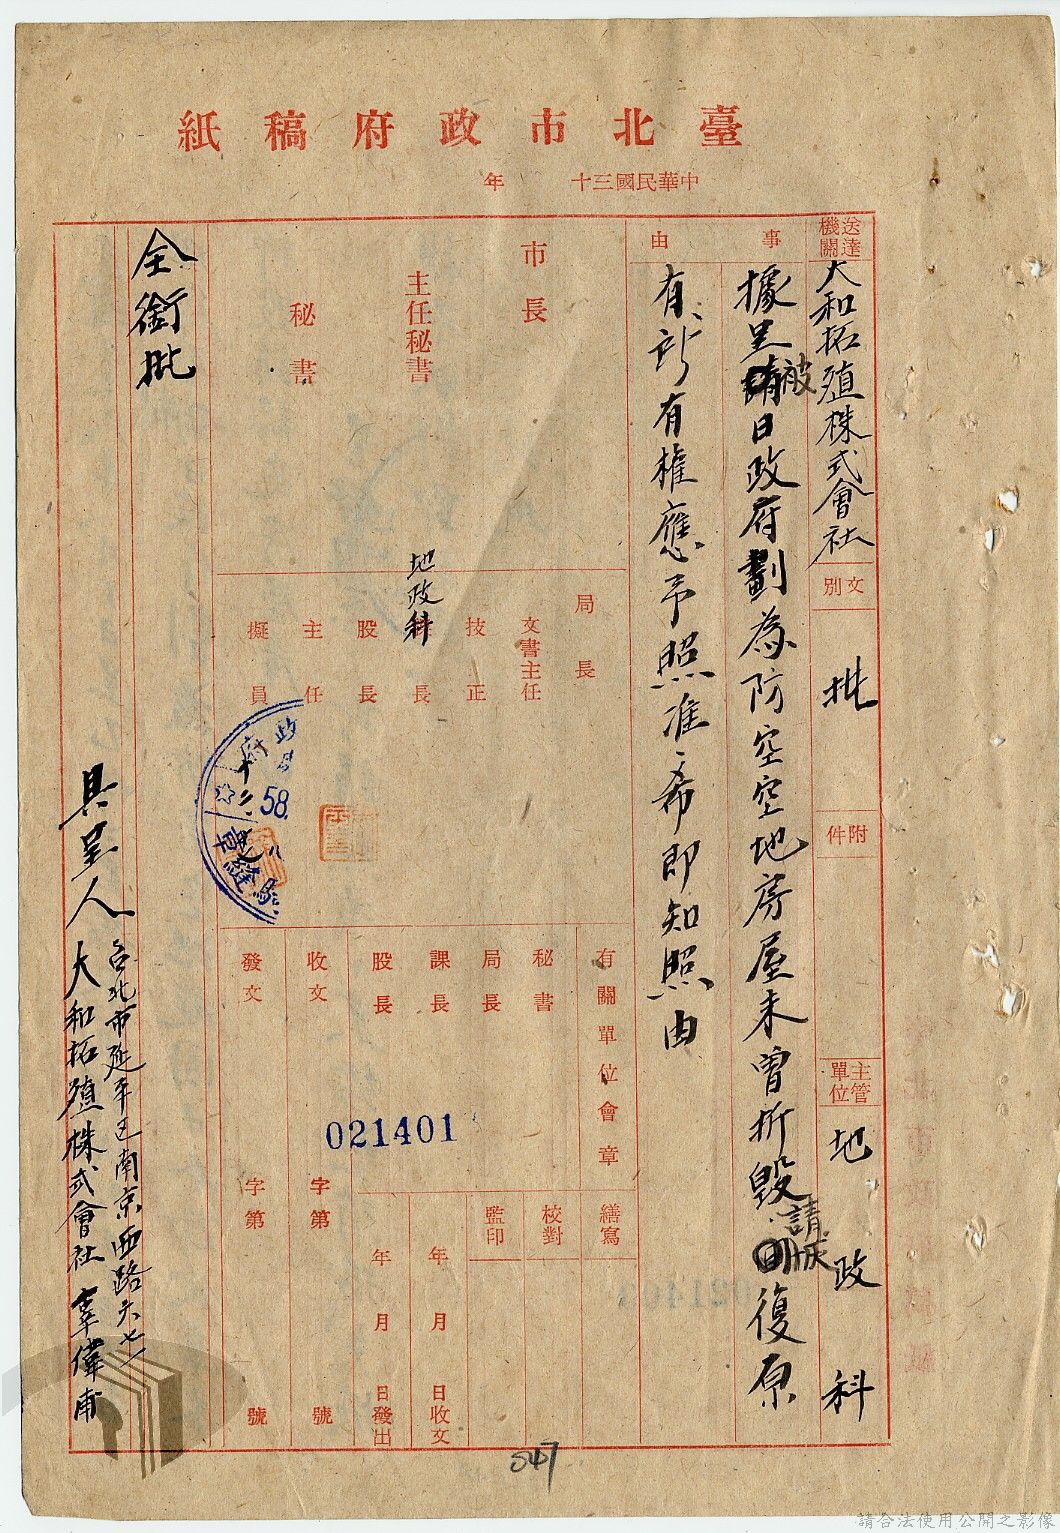 臺北市政府稿紙
中華民國三十 年
送達機關
大和拓殖株式會社
文別
批
附件
主管單位
地政科
事由
據呈被日政府劃為防空空地房屋未曾折毀請恢復原
有所有權應予照准希即知照由
市長
主任秘書
秘書
局長
文書主任
技正
長
地政科
股長
主任
擬員
有關單位會章
秘書
局長
課長
股長
繕寫
校對
監印
年 月 日收文
年 月 日發出
收文 字第 號
發文 字第 號
021401
政府
58.
縫章
全銜批
具呈人
台北市延平區南京西路六七
大和拓殖株式會社 辜偉甫
547
請合法使用公開之影像